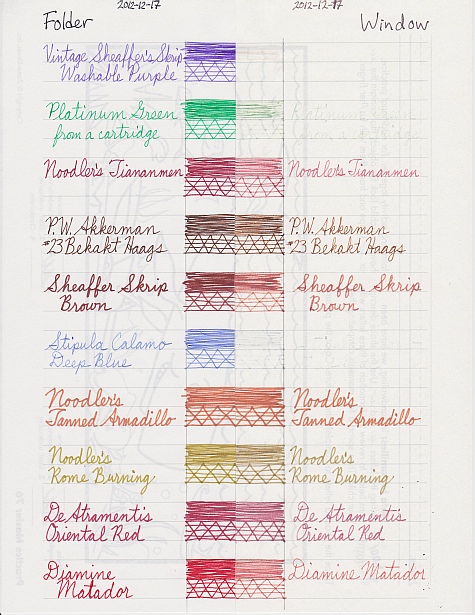 2012-12-17 2012-12-17
Folder Window
Vintage Sheaffer's Skrip
Washable Purple
Platinum Green
from a cartridge
Noodler's Tiananmen Noodler's Tiananmen
P.W. Akkerman P.W. Akkerman
#23 Bekakt Haags #23 Bekakt Haags
Sheaffer Skrip Sheaffer Skrip
Brown Brown
Stipula Calamo
Deep Blue
Noodler's Noodler's
Tanned Armadillo Tanned Armadillo
Noodler's Noodler's
Rome Burning Rome Burning
De Atramentis De Atramentis
Oriental Red Oriental Red
Diamine Diamine Matador
Matador